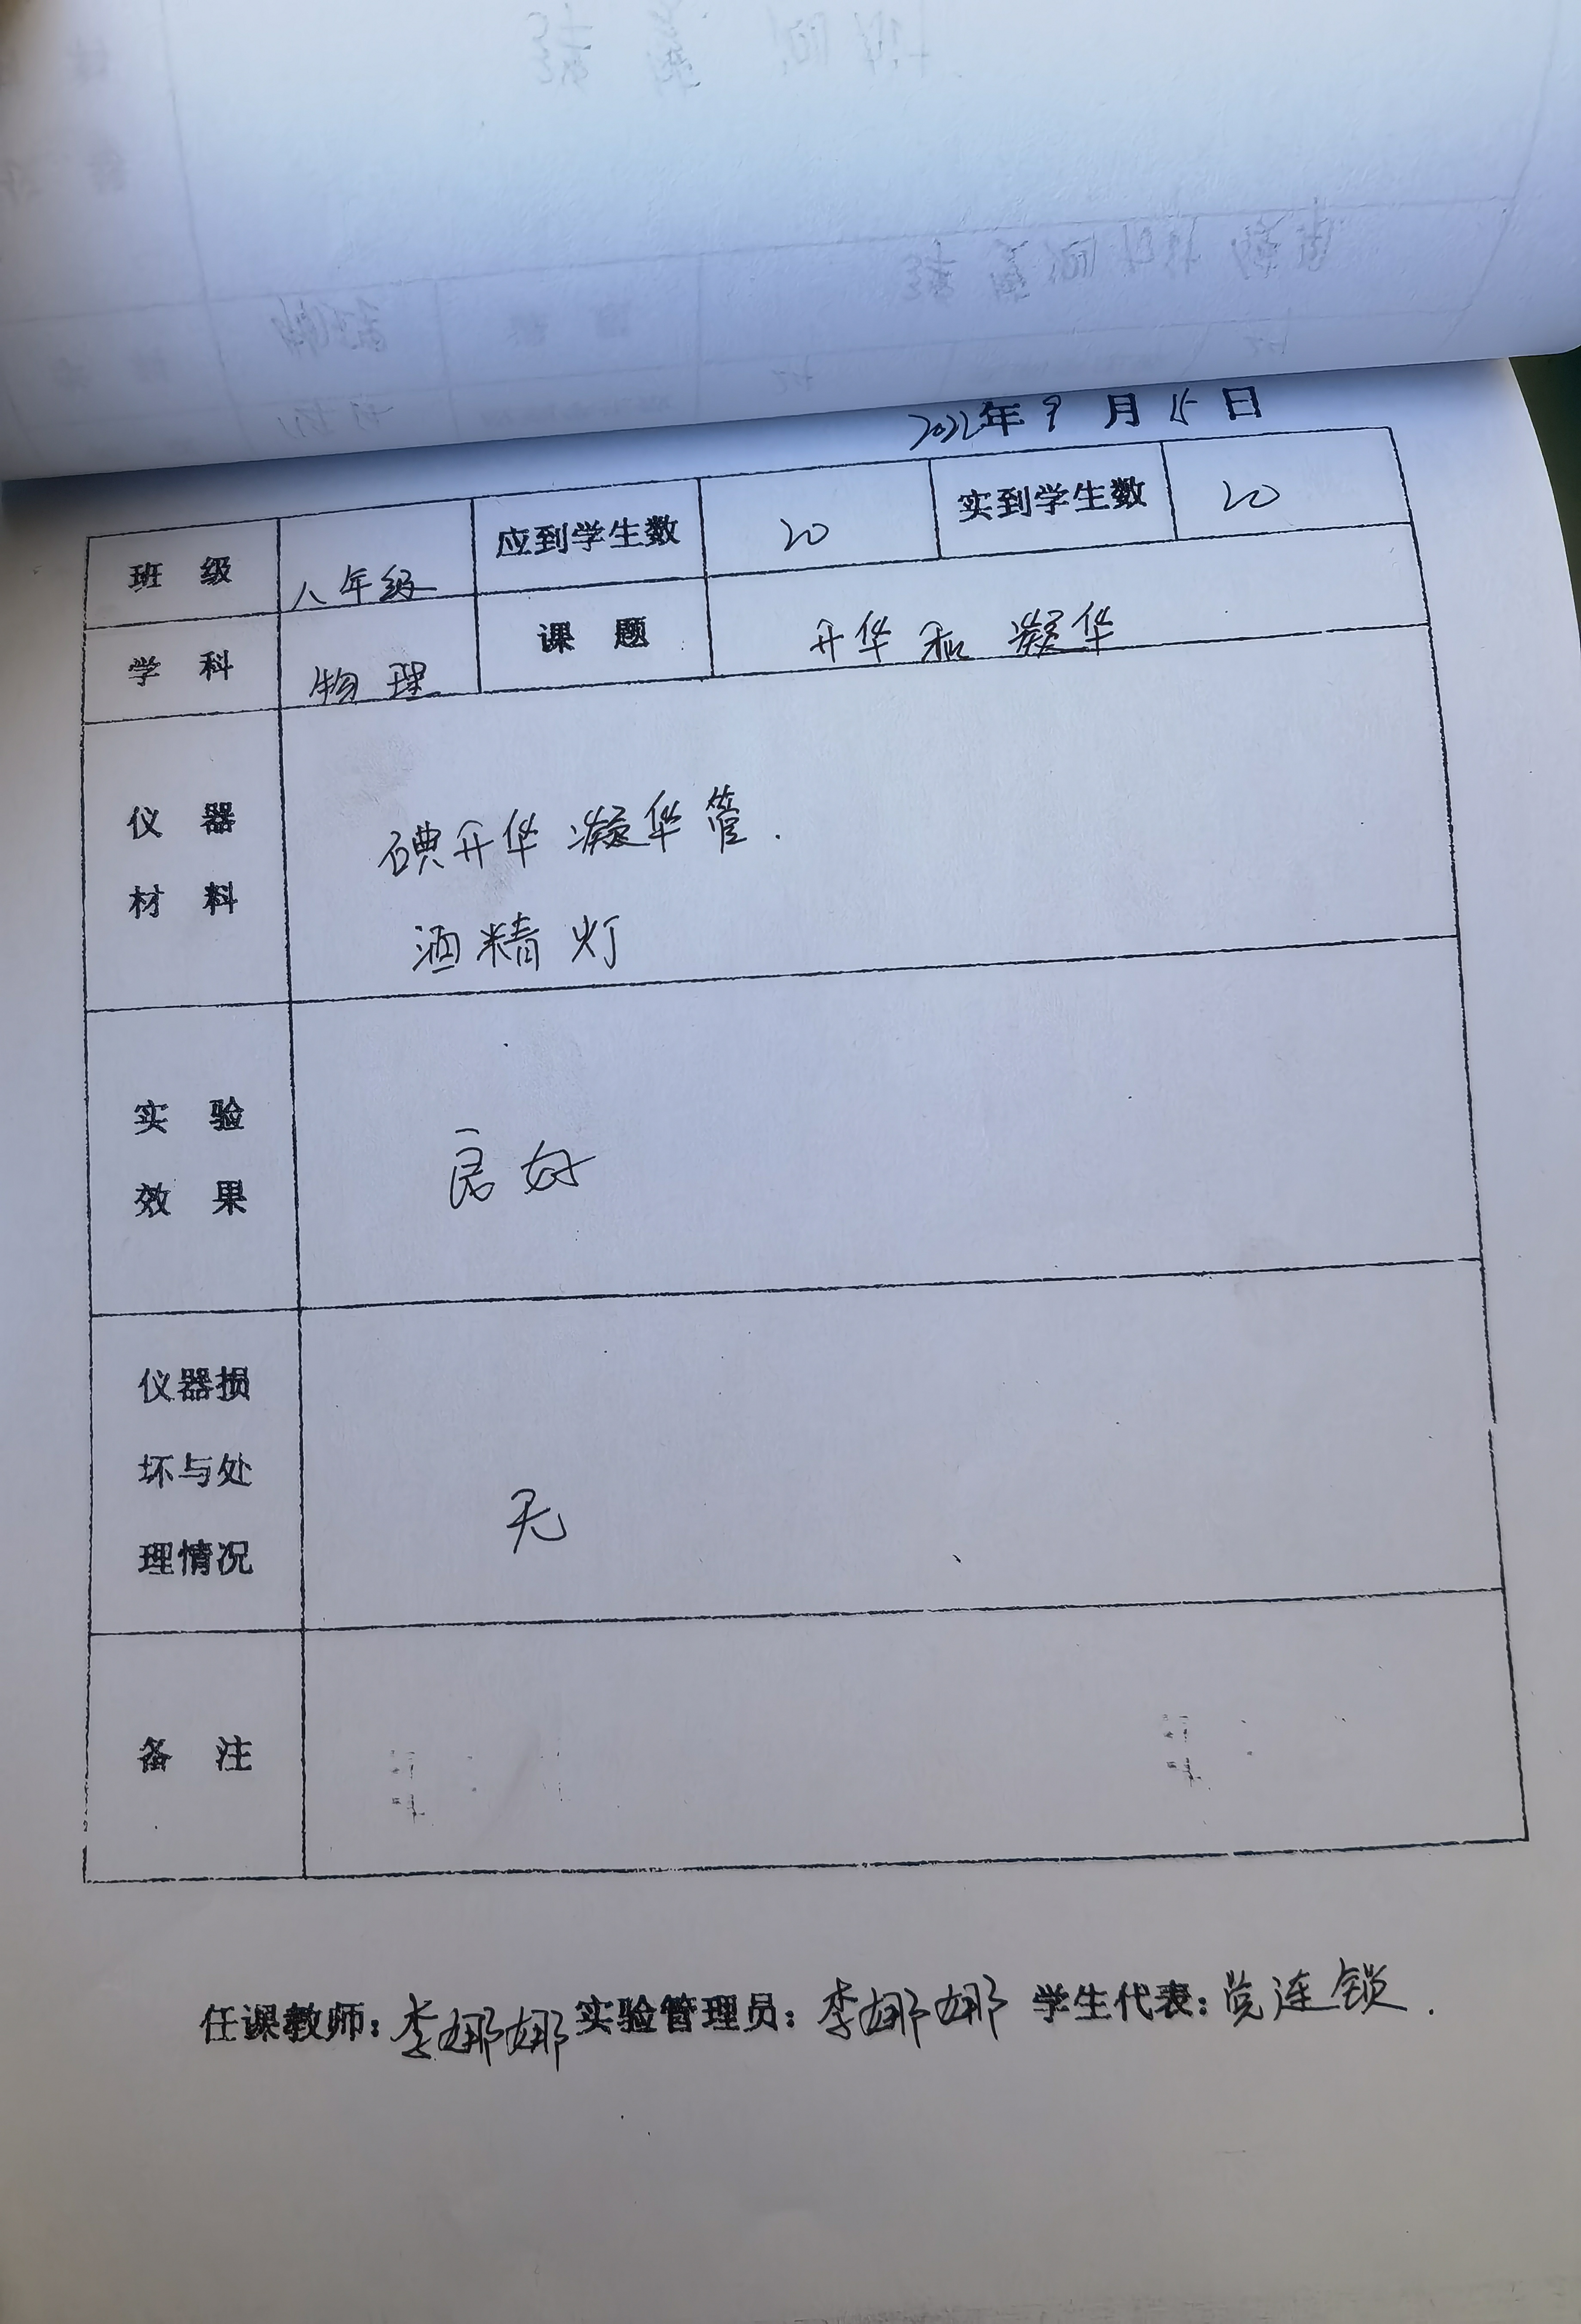 2022年9月15日
班级 八年级 应到学生数 20 实到学生数 20
学科 物理 课题 升华和凝华
仪器
材料
碘升华凝华管.
酒精灯
实验
效果
良好
仪器损
坏与处
理情况
无
备注
任课教师:李娜娜 实验管理员:李娜娜 学生代表:党连锁.